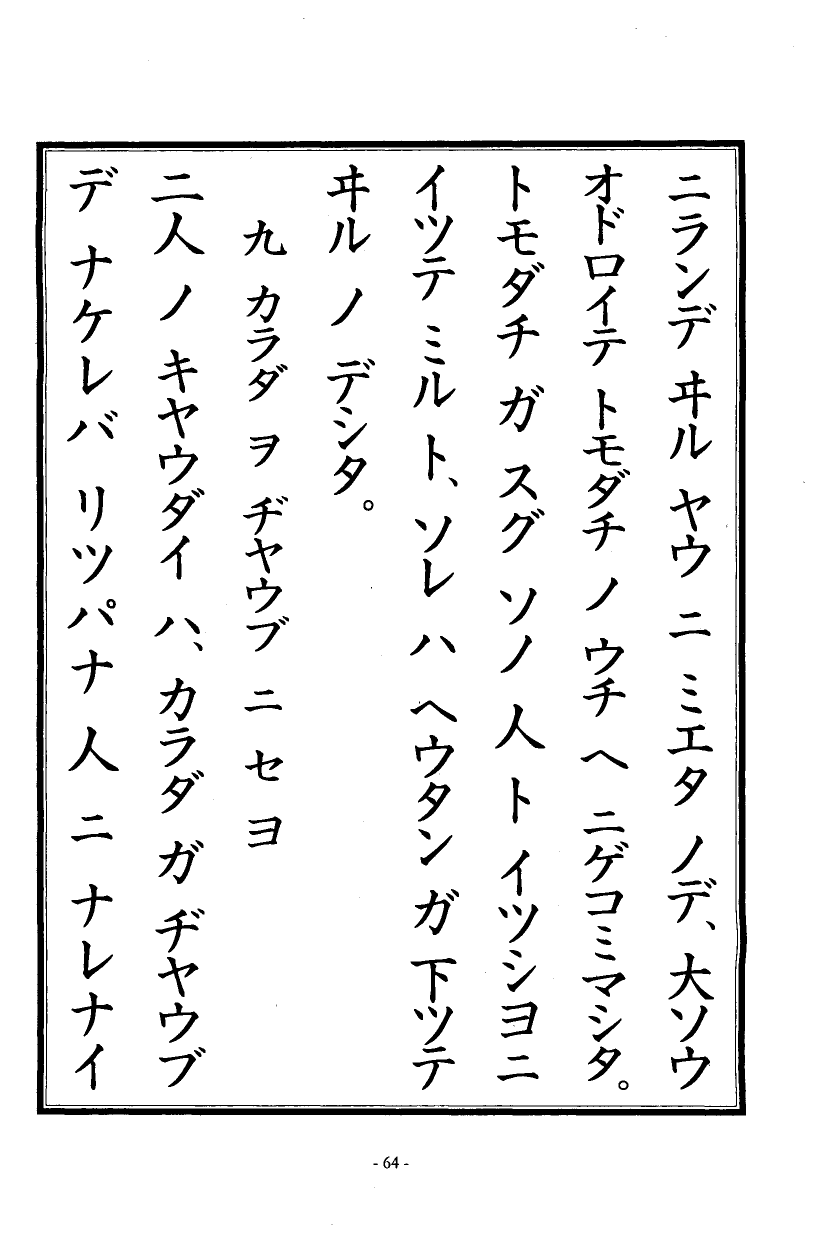 ニランデ ヰル ヤウ ニ ミエタ ノデ、大ソウ
オドロイテ トモダチ ノ ウチ ヘ ニゲコミマシタ。
トモダチ ガ スグ ソノ 人 ト イツシヨニ
イツテ ミル ト、ソレ ハ ヘウタン ガ 下ツテ
ヰル ノ デシタ。
九 カラダ ヲ ヂヤウブ ニ セ ヨ
二人 ノ キヤウダイ ハ、カラダ ガ ヂヤウブ
デ ナケレバ リツパナ 人 ニ ナレナイ
- 64 -